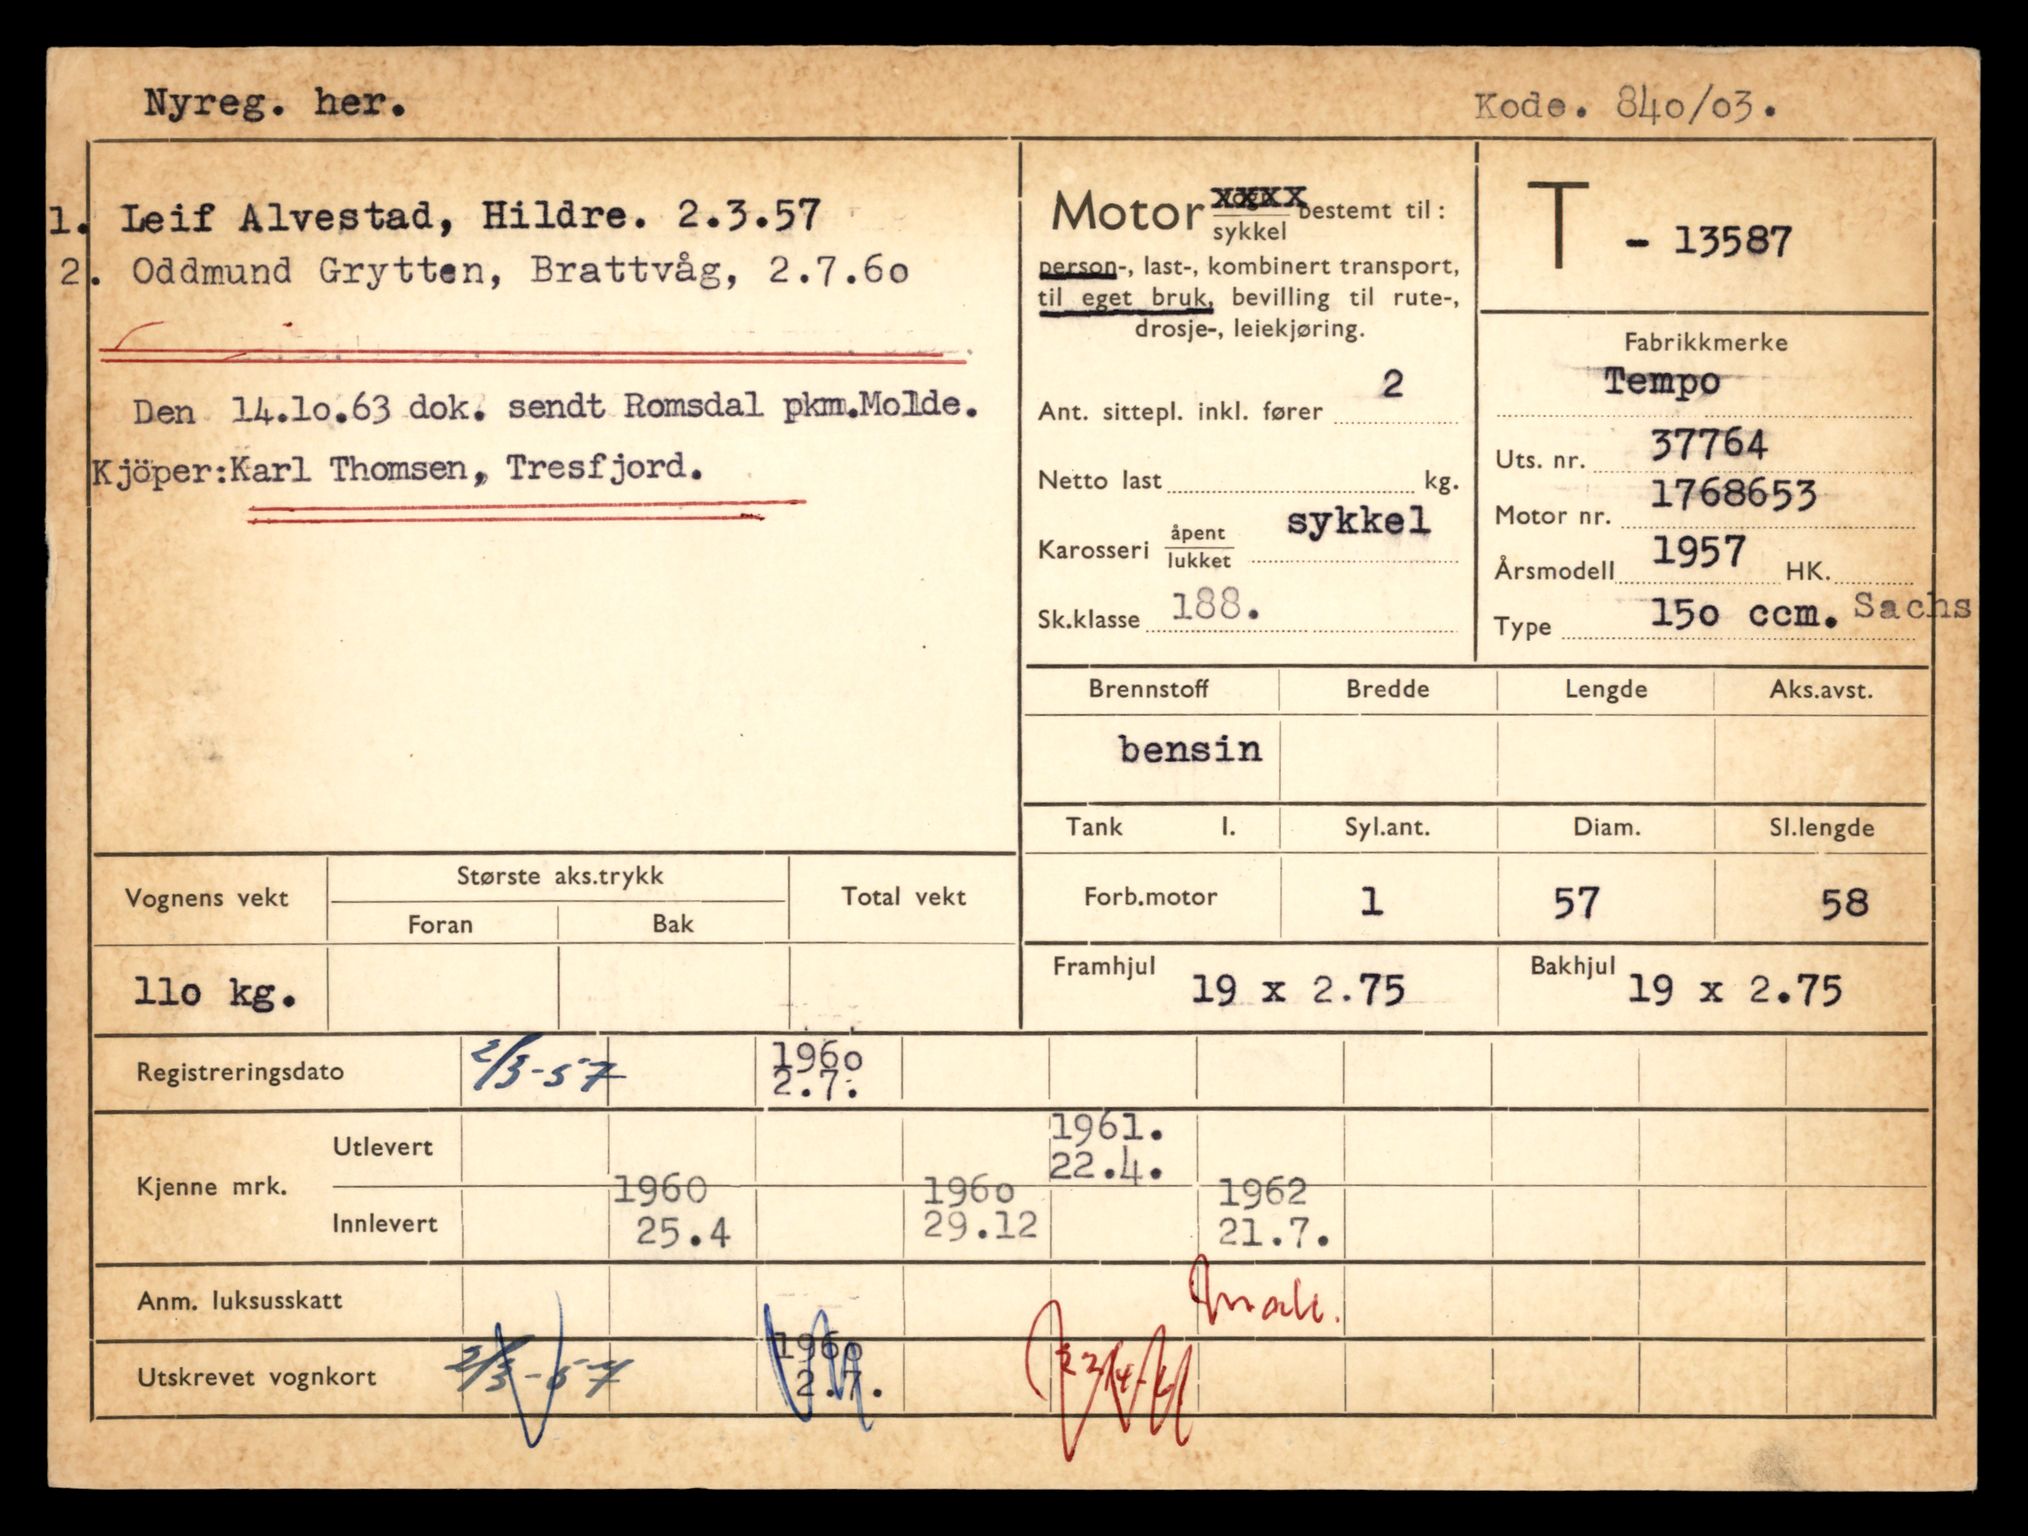 Nyreg. her.
Kode. 840/03.
1. Leif Alvestad, Hildre. 2.3.57
2. Oddmund Grytten, Brattvåg, 2.7.60
Den 14.10.63 dok. sendt Romsdal pkm.Molde.
Kjöper:Karl Thomsen, Tresfjord.
Motor sykkel bestemt til:
person-, last-, kombinert transport,
til eget bruk, bevilling til rute-,
drosje-, leiekjøring.
Ant. sittepl. inkl. fører 2
Netto last kg.
Karosseri åpent lukket sykkel
Sk.klasse 188.
T - 13587
Fabrikkmerke
Tempo
Uts. nr. 37764
Motor nr. 1768653
Årsmodell 1957 HK.
Type 150 ccm. Sachs
Brennstoff Bredde Lengde Aks.avst.
bensin
Tank l. Syl.ant. Diam. Sl.lengde
Forb.motor 1 57 58
Framhjul 19 x 2.75 Bakhjul 19 x 2.75
Vognens vekt Største aks.trykk Total vekt
Foran Bak
110 kg.
Registreringsdato 2/3-57 1960 2.7.
Kjenne mrk.
Utlevert 1961. 22.4.
Innlevert 1960 25.4 1960 29.12 1962 21.7.
Anm. luksusskatt
Utskrevet vognkort 2/3-57 1960 2.7.